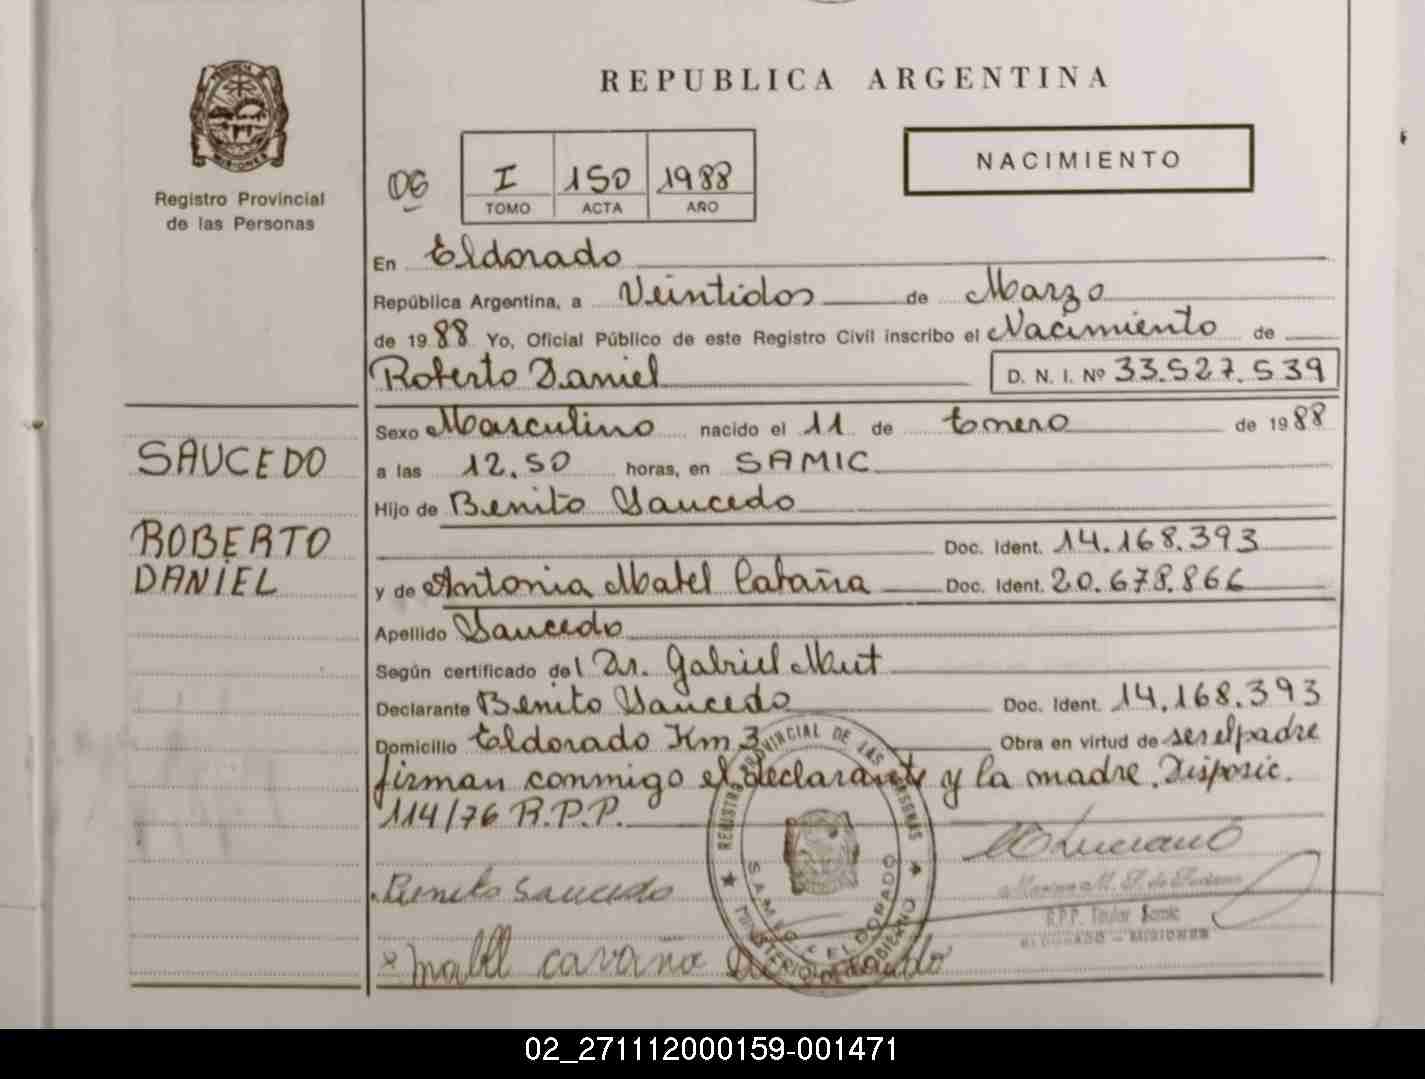 REPUBLICA ARGENTINA
Registro Provincial
de las Personas
06
I 150 1988
TOMO ACTA AÑO
NACIMIENTO
En Eldorado
República Argentina, a Veintidos de Marzo
de 1988 Yo, Oficial Público de este Registro Civil inscribo el Nacimiento de
Roberto Daniel D. N. I. Nº 33.527.539
Sexo Masculino nacido el 11 de Enero de 1988
a las 12.50 horas, en SAMIC
Hijo de Benito Saucedo
Doc. Ident. 14.168.393
y de Antonia Mabel Cabaña Doc. Ident. 20.678.866
Apellido Saucedo
Según certificado del Dr. Gabriel Mut
Declarante Benito Saucedo Doc. Ident. 14.168.393
Domicilio Eldorado Km 3 Obra en virtud de ser el padre
firman conmigo el declarante y la madre. Disposic.
114/76 R.P.P.
SAUCEDO
ROBERTO
DANIEL
REGISTRO PROVINCIAL DE LAS PERSONAS
MINISTERIO DE GOBIERNO
ELDORADO
Luciano
Benito Saucedo
R.P.P. Titular Samic
ELDORADO - MISIONES
Mabel cavana
02_271112000159-001471